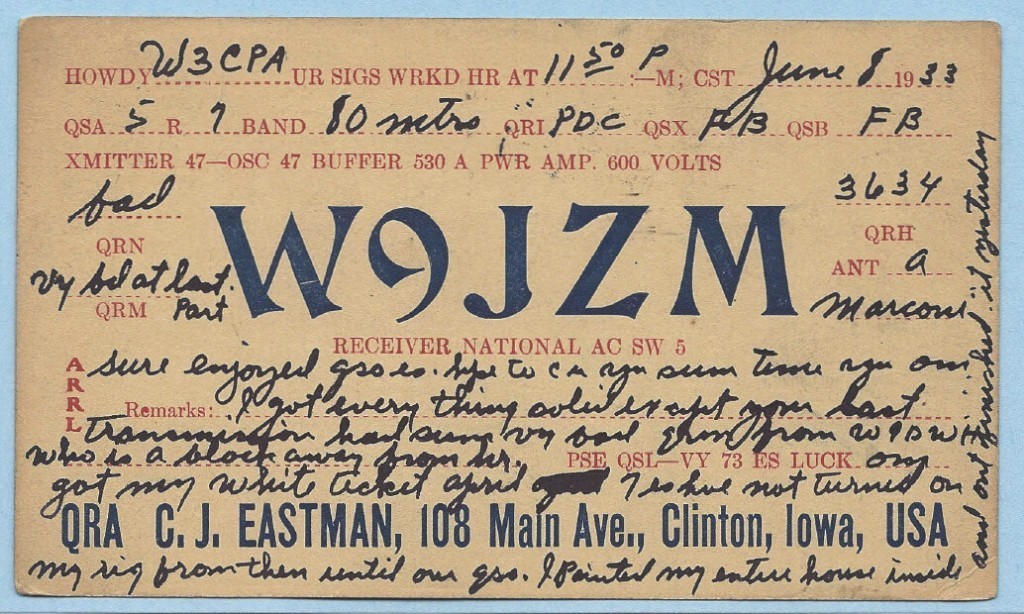 HOWDY W3CPA UR SIGS WRKD HR AT 11 50 P :—M; CST June 8 1933
QSA 5 R 7 BAND 80 mtrs QRI PDC QSX FB QSB FB
XMITTER 47—OSC 47 BUFFER 530 A PWR AMP. 600 VOLTS
bad
QRN
vy bd at last
QRM Part
W9JZM
3634
QRH
ANT a
Marconi
RECEIVER NATIONAL AC SW 5
ARRL
sure enjoyed qso es. hpe to c u yu sum time yu om
Remarks: I got every thing solid except your last
Transmission had sum vy bad qrm from W9DWH
who is a block away from hr. PSE QSL—VY 73 ES LUCK om
got my white ticket april 7 es hve not turned on
QRA C. J. EASTMAN, 108 Main Ave., Clinton, Iowa, USA
my rig from then until our qso. I Painted my entire house inside
and out finished it yesturday